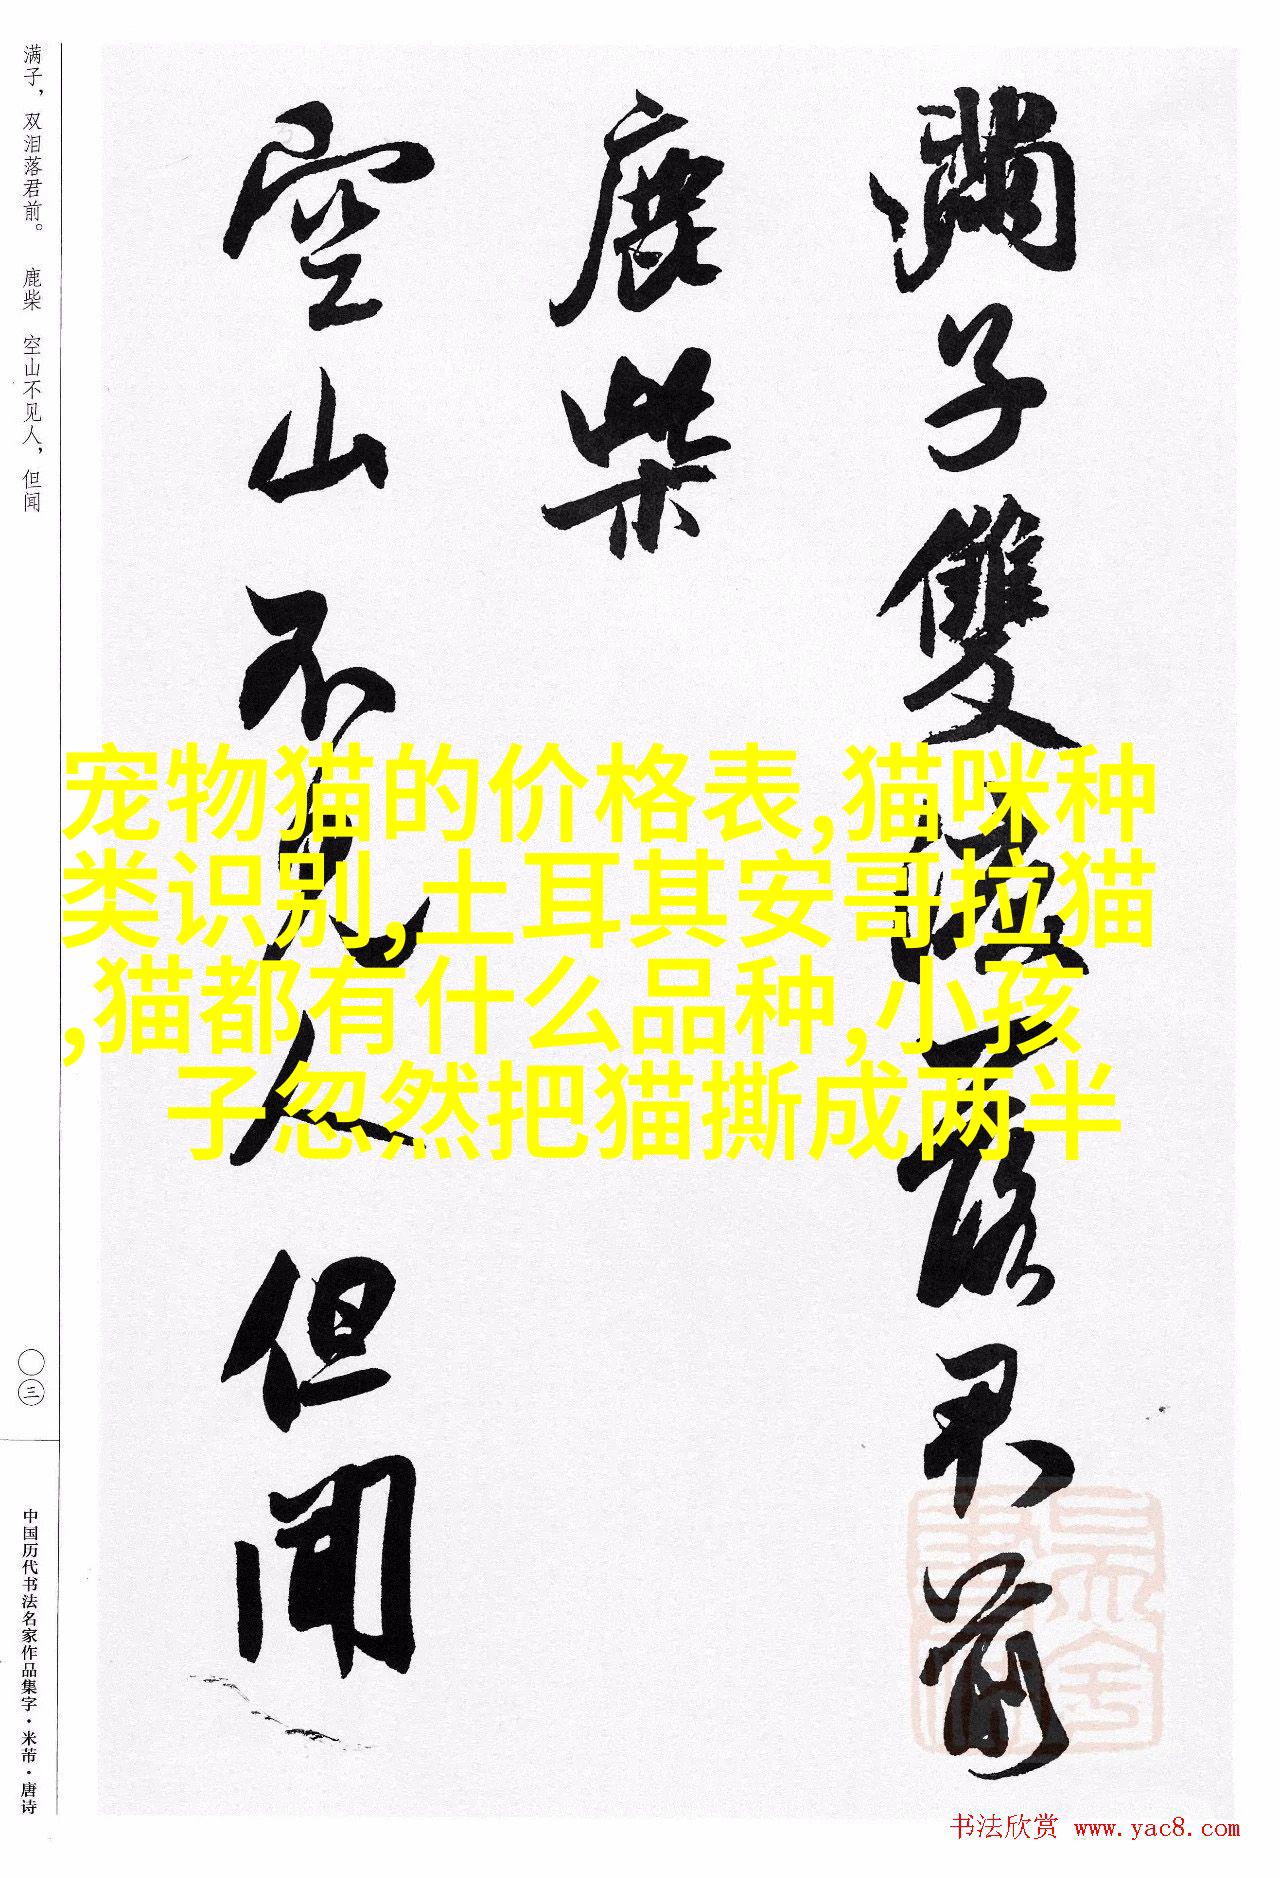 满子，双泪落君前。 鹿柴 空山不见人，但闻
滿子雙淚落君前
鹿柴
空山不見人但聞
宠物猫的价格表,猫咪种
类识别,土耳其安哥拉猫
,猫都有什么品种,小孩
子忽然把猫撕成两半
〇三
中国历代书法名家作品集字·米芾·唐诗
书法欣赏 www.yac8.com